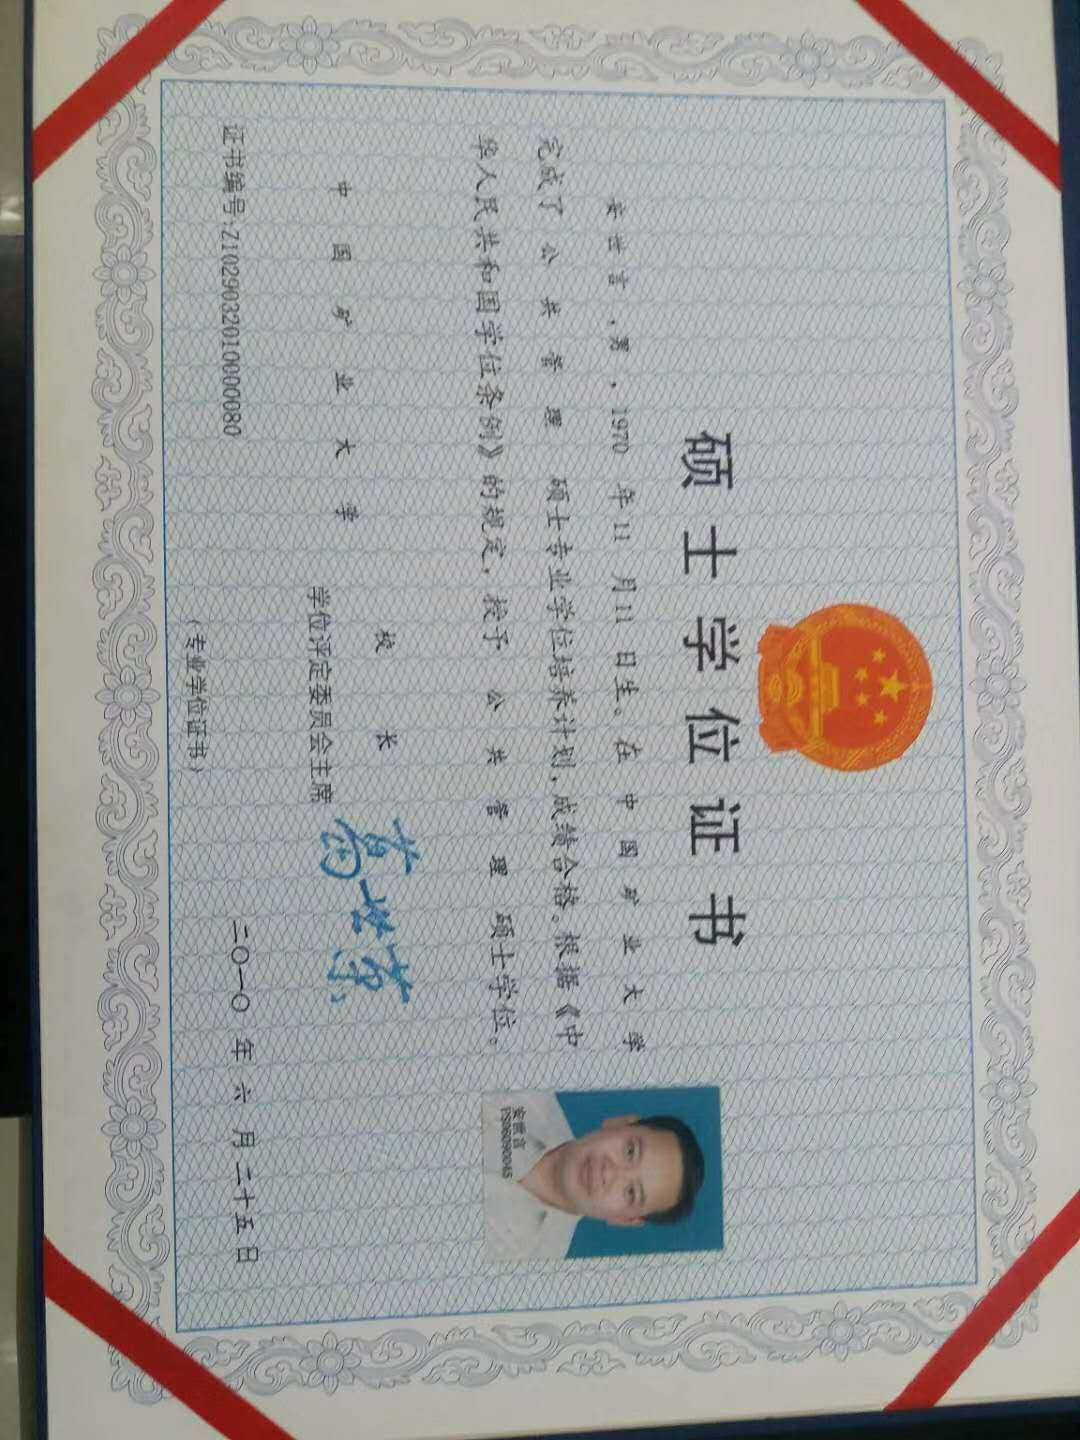 硕士学位证书
安世言，男，1970年11月11日生。在中国矿业大学
完成了公共管理硕士专业学位培养计划，成绩合格。根据《中
华人民共和国学位条例》的规定，授予公共管理硕士学位。
安世言
中国矿业大学
校长
学位评定委员会主席
葛世荣
证书编号:Z1029032010000080
二〇一〇年六月二十五日
（专业学位证书）